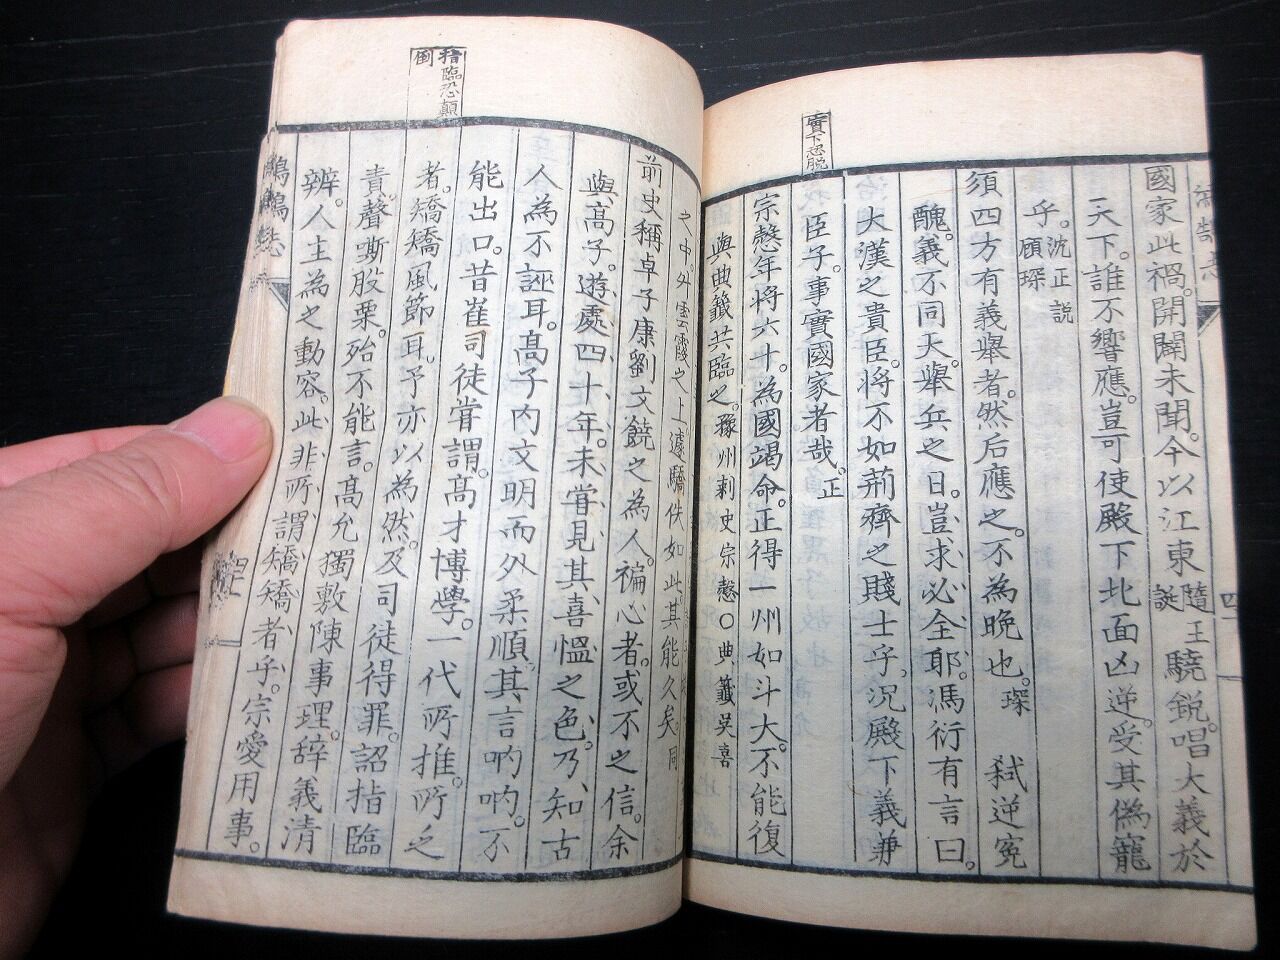 實下恐脫
國家此禍。開闢未聞。今以江東隨王誕驍銳。唱大義於
天下。誰不響應。豈可使殿下北面凶逆。受其偽寵
乎。沈正說顧琛
須四方有義舉者。然后應之。不為晚也。琛 弒逆冤
醜。義不同天。舉兵之日。豈求必全耶。馮衍有言曰。
大漢之貴臣。將不如荊齊之賤士乎。況殿下義兼
臣子。事實國家者哉。正
宗愨年將六十。為國竭命。正得一州如斗大。不能復
與典籤共臨之。豫州刺史宗愨〇典籤吳喜
指臨恐顛倒
之中。外雲霞之上。遽驕佚如此。其能久矣。同
前史稱卓子康劉文饒之為人。褊心者。或不之信。余
與高子。遊處四十年。未嘗見其喜慍之色。乃知古
人為不誣耳。高子內文明而外柔順。其言吶吶。不
能出口。昔崔司徒嘗謂。高才博學。一代所推。所乏
者。矯矯風節耳。予亦以為然。及司徒得罪。詔指臨
責。聲嘶股栗。殆不能言。高允獨敷陳事理。辞義清
辨。人主為之動容。此非所謂矯矯者乎。宗愛用事。